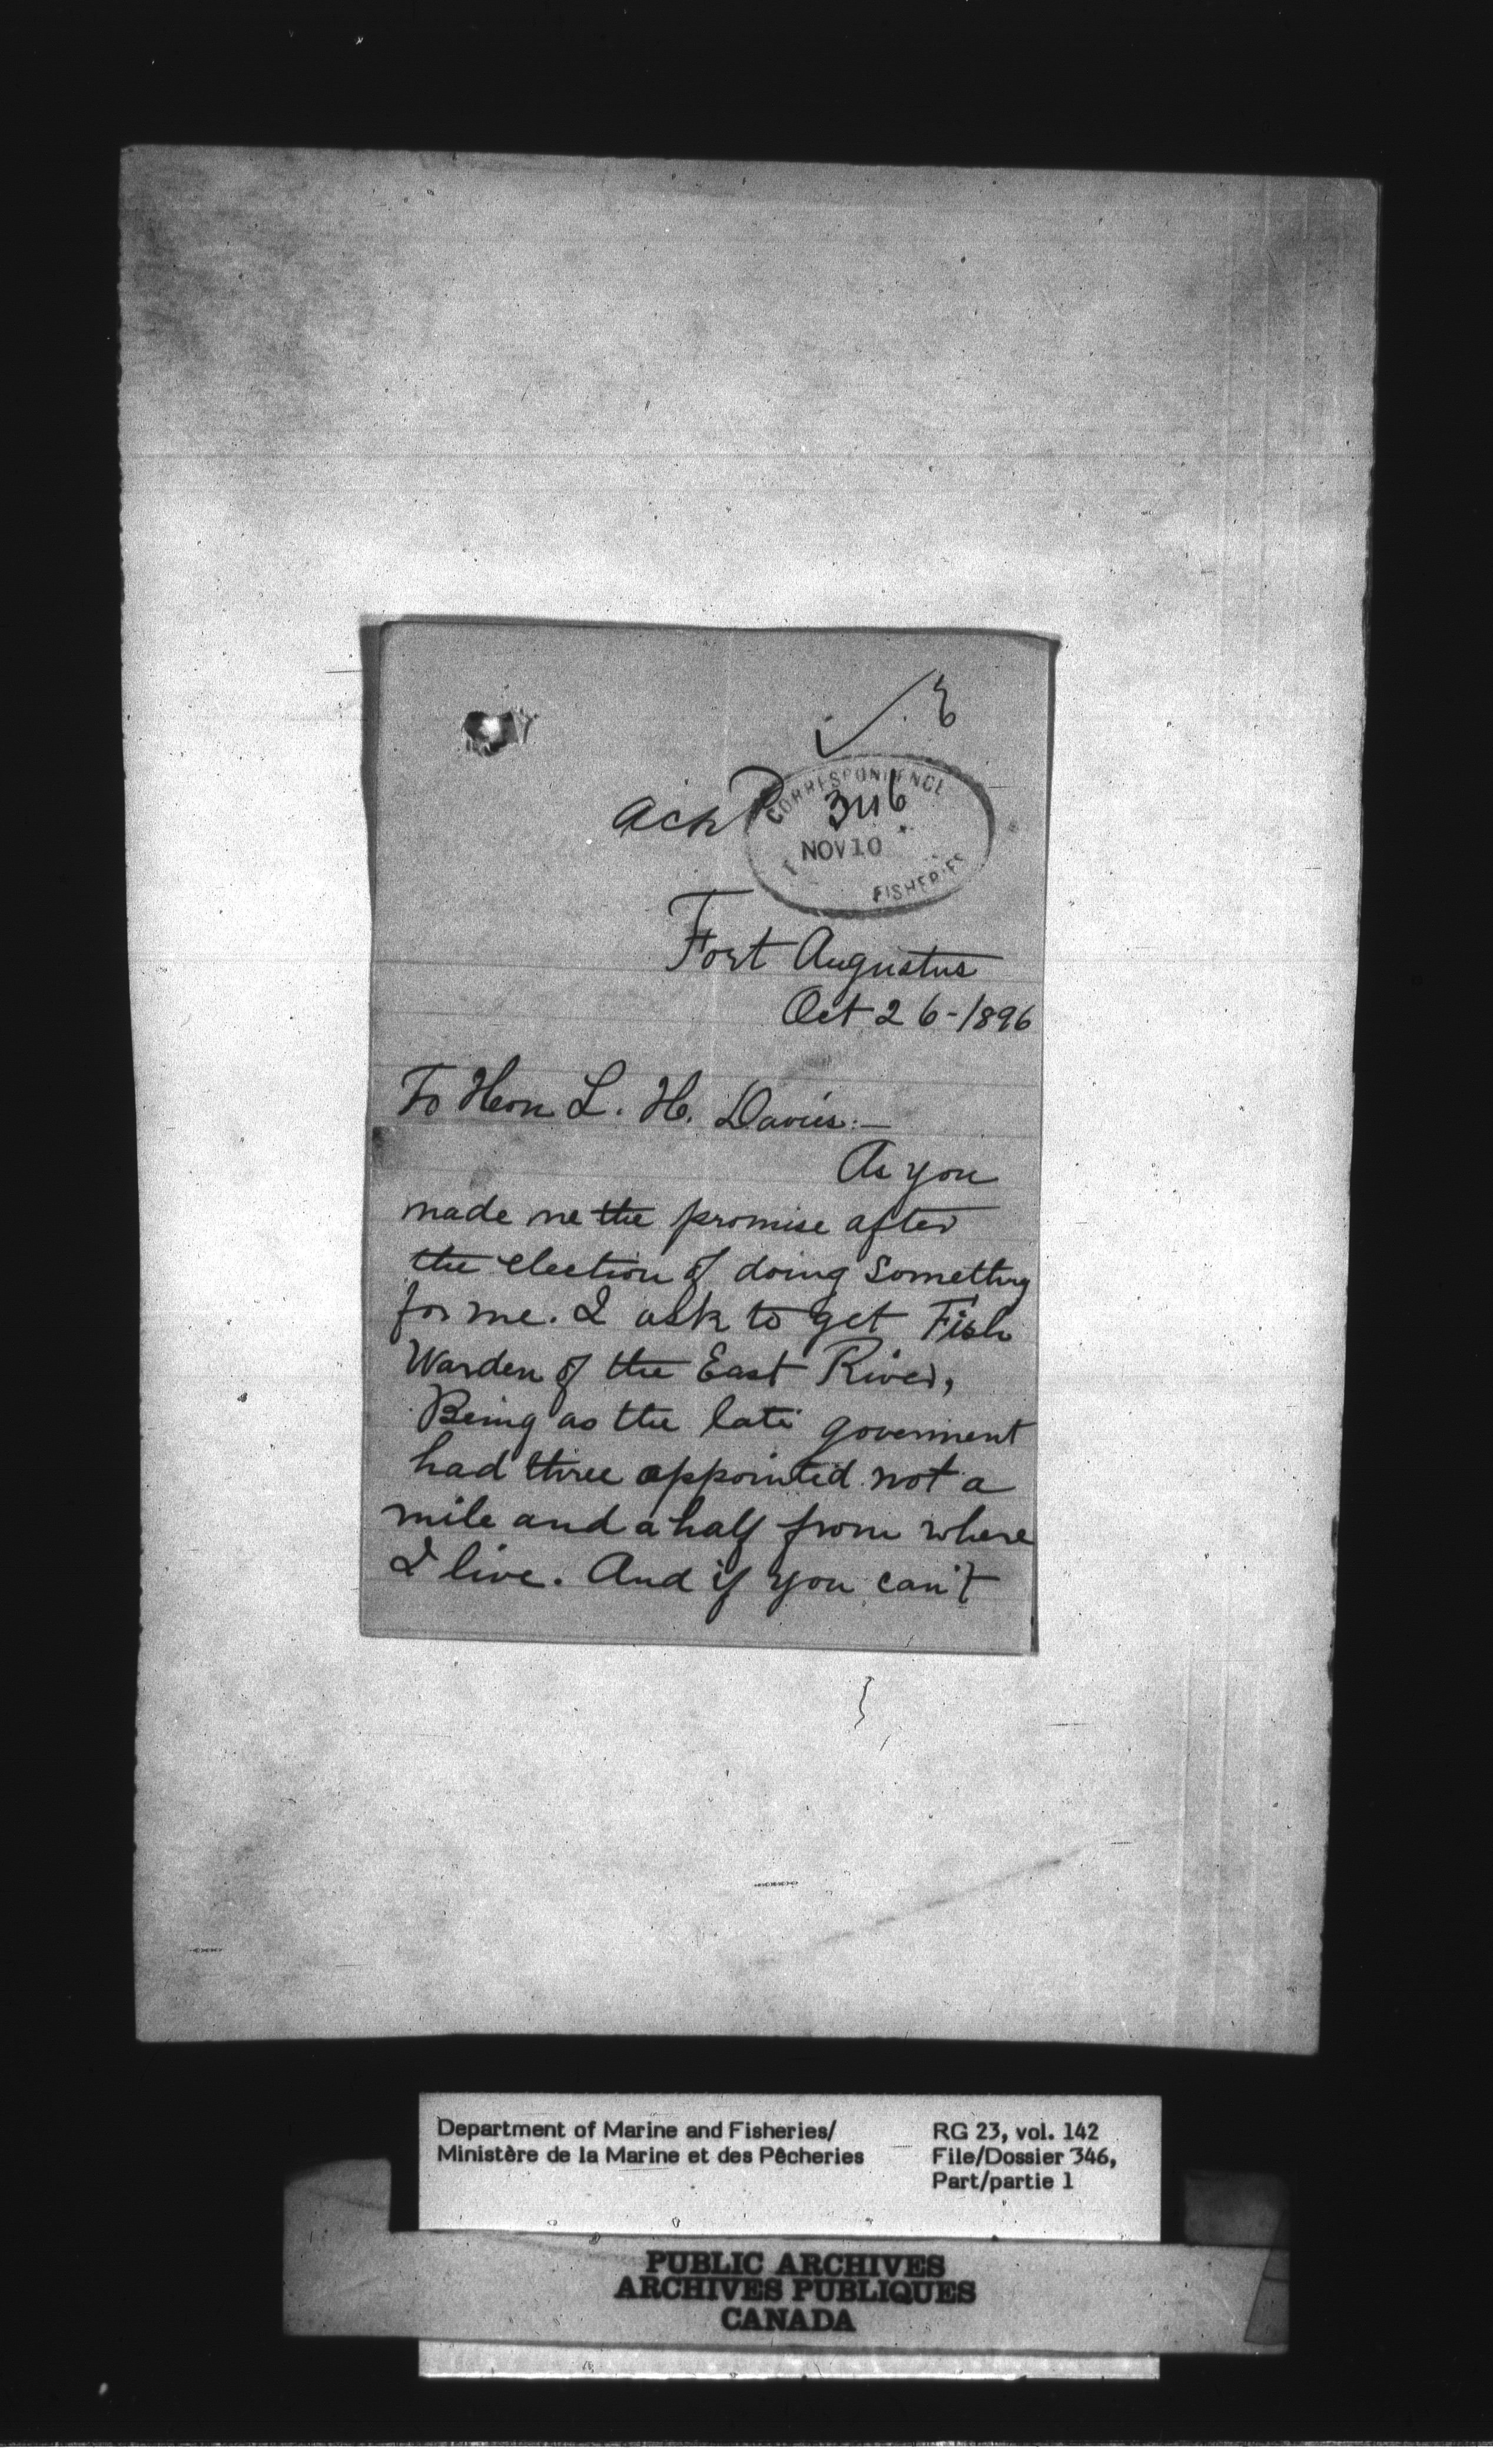 Ackd
CORRESPONDENCE
346
NOV 10
FISHERIES
Fort Augustus
Oct 26-1896
To Hon L. H. Davies:—
As you
made me the promise after
the election of doing Something
for me. I ask to get Fish
Warden of the East River,
Being as the late goverment
had three appointed not a
mile and a half from where
I live. And if you can't
Department of Marine and Fisheries/
Ministère de la Marine et des Pêcheries
RG 23, vol. 142
File/Dossier 346,
Part/partie 1
PUBLIC ARCHIVES
ARCHIVES PUBLIQUES
CANADA